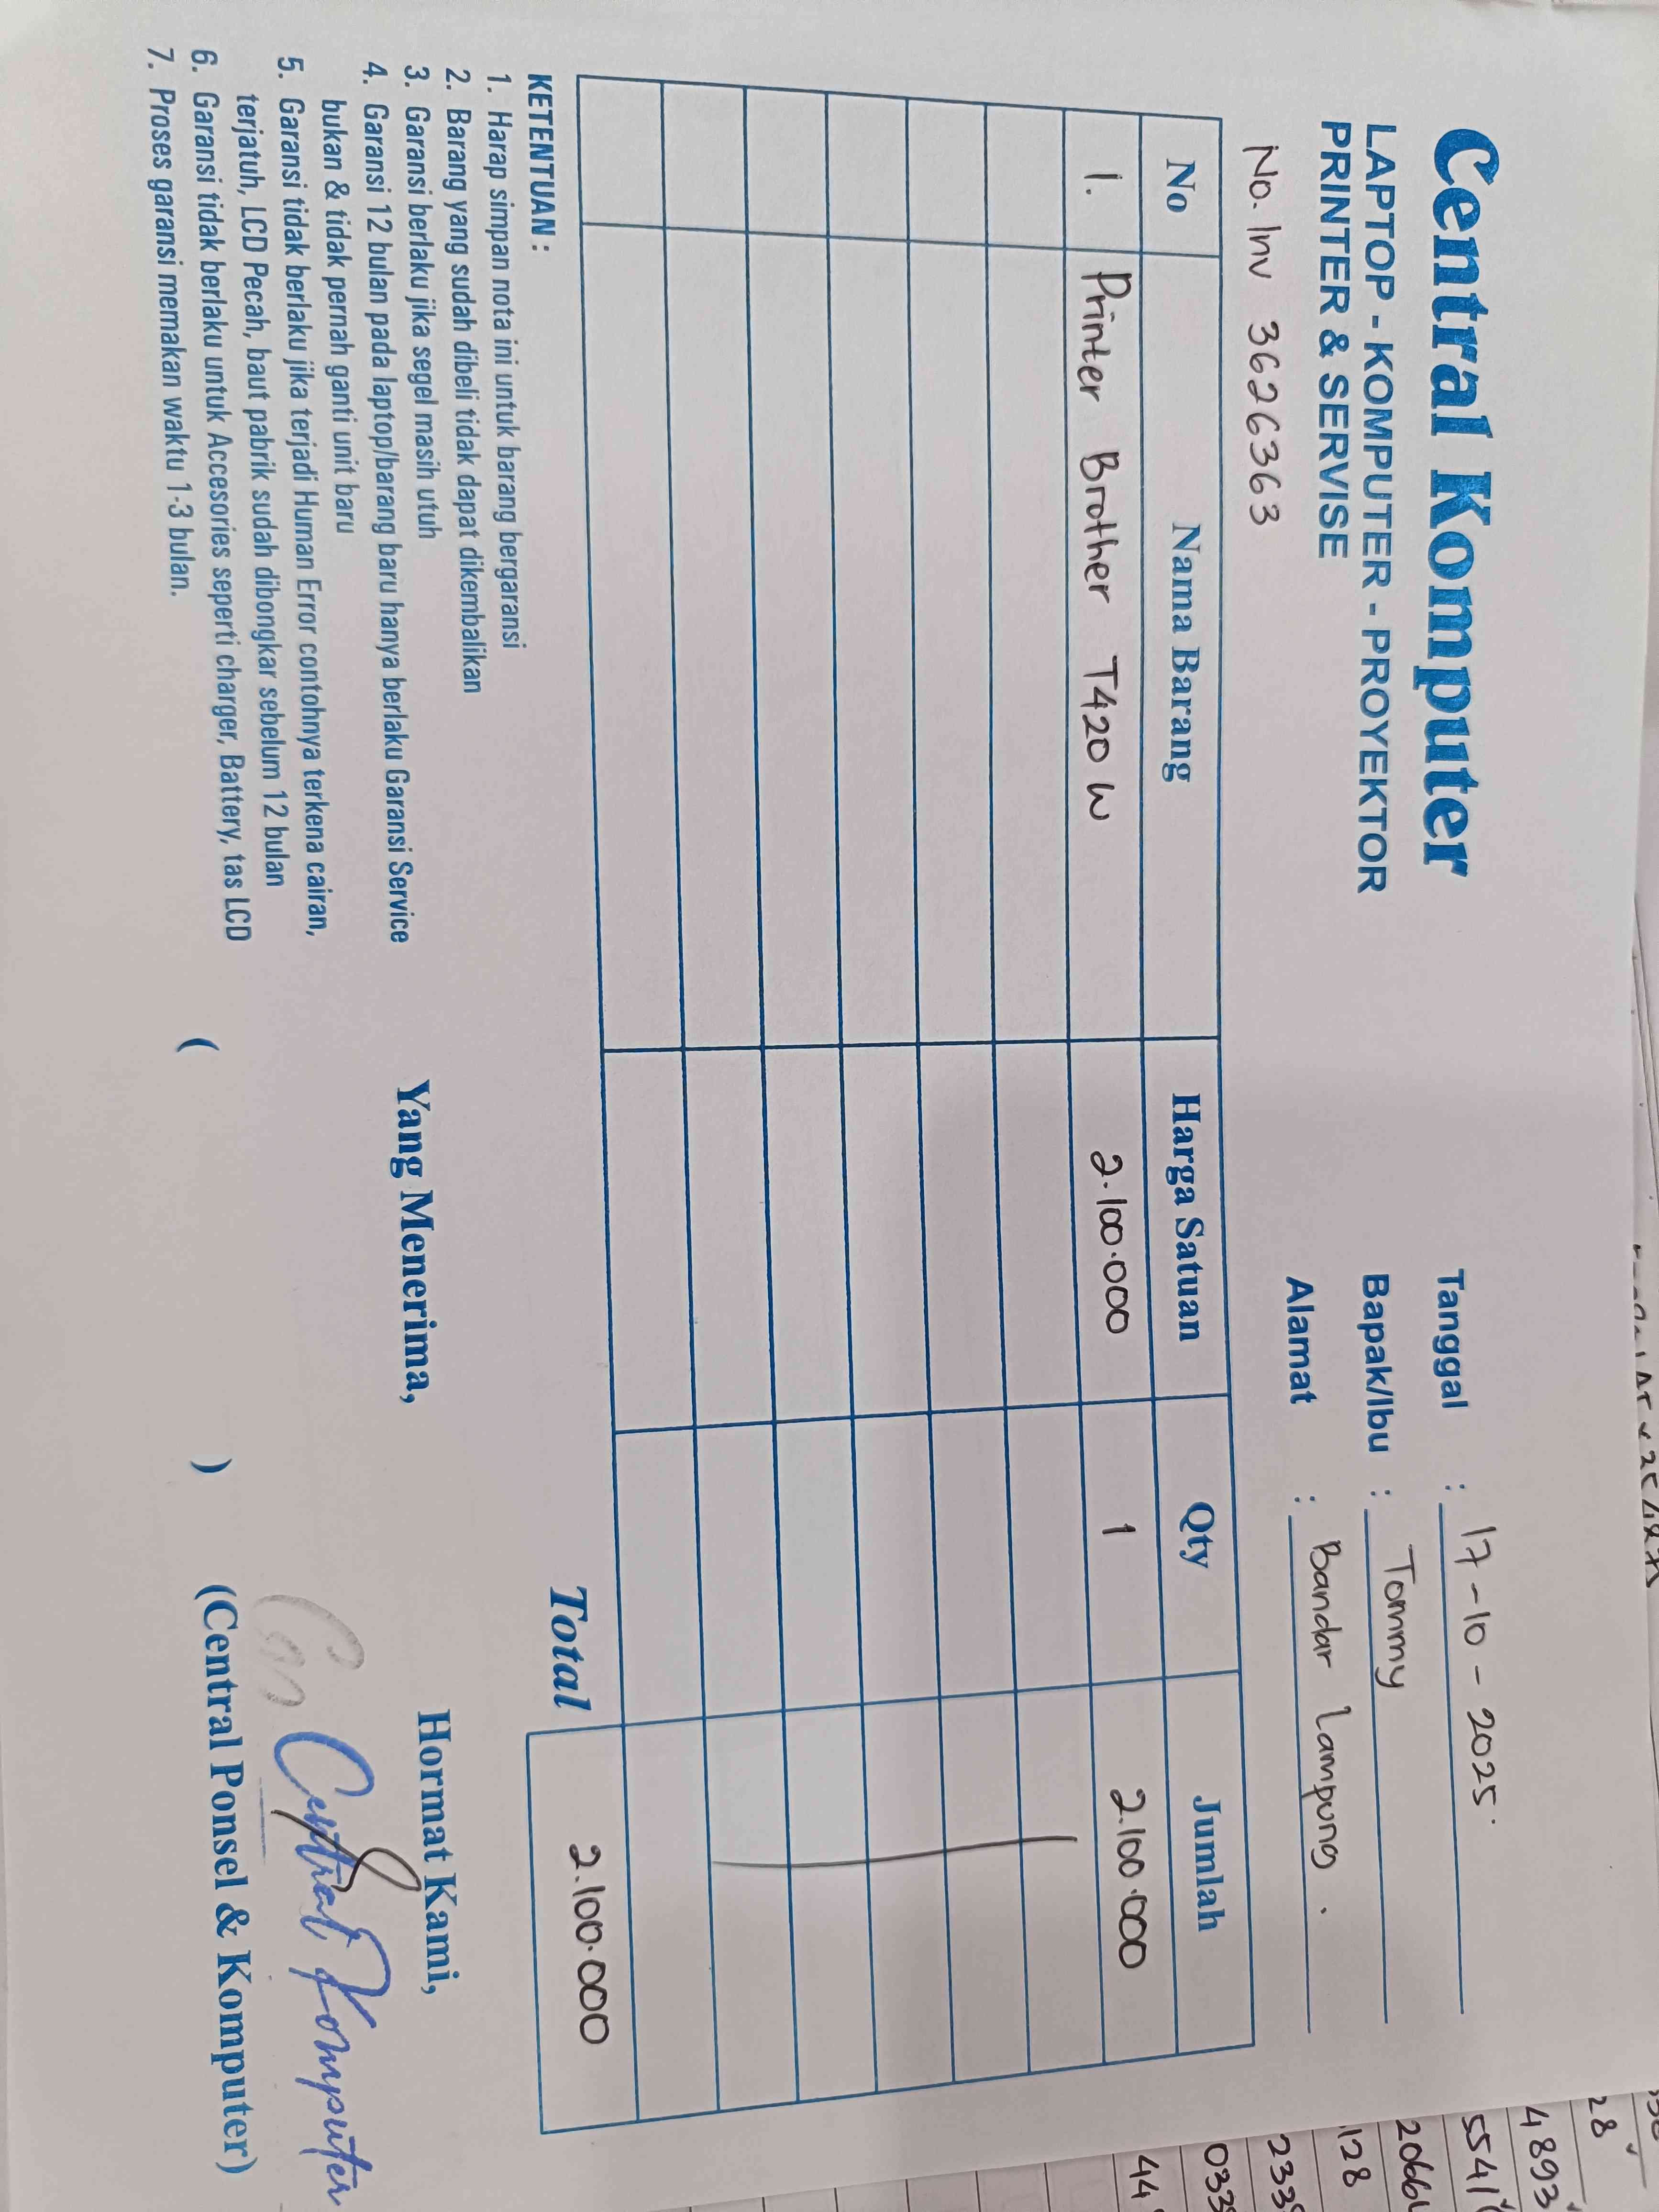 Central Komputer
LAPTOP - KOMPUTER - PROYEKTOR
PRINTER & SERVISE
No. Inv 3626363
Tanggal : 17-10-2025.
Bapak/Ibu : Tommy
Alamat : Bandar Lampung.
No Nama Barang Harga Satuan Qty Jumlah
1. Printer Brother T420 W 2.100.000 1 2.100.000
Total 2.100.000
KETENTUAN :
1. Harap simpan nota ini untuk barang bergaransi
2. Barang yang sudah dibeli tidak dapat dikembalikan
3. Garansi berlaku jika segel masih utuh
4. Garansi 12 bulan pada laptop/barang baru hanya berlaku Garansi Service
bukan & tidak pernah ganti unit baru
5. Garansi tidak berlaku jika terjadi Human Error contohnya terkena cairan,
terjatuh, LCD Pecah, baut pabrik sudah dibongkar sebelum 12 bulan
6. Garansi tidak berlaku untuk Accesories seperti charger, Battery, tas LCD
7. Proses garansi memakan waktu 1-3 bulan.
Yang Menerima,
( )
Hormat Kami,
Central Komputer
(Central Ponsel & Komputer)
28
4893
5541
2066
128
233
033
44